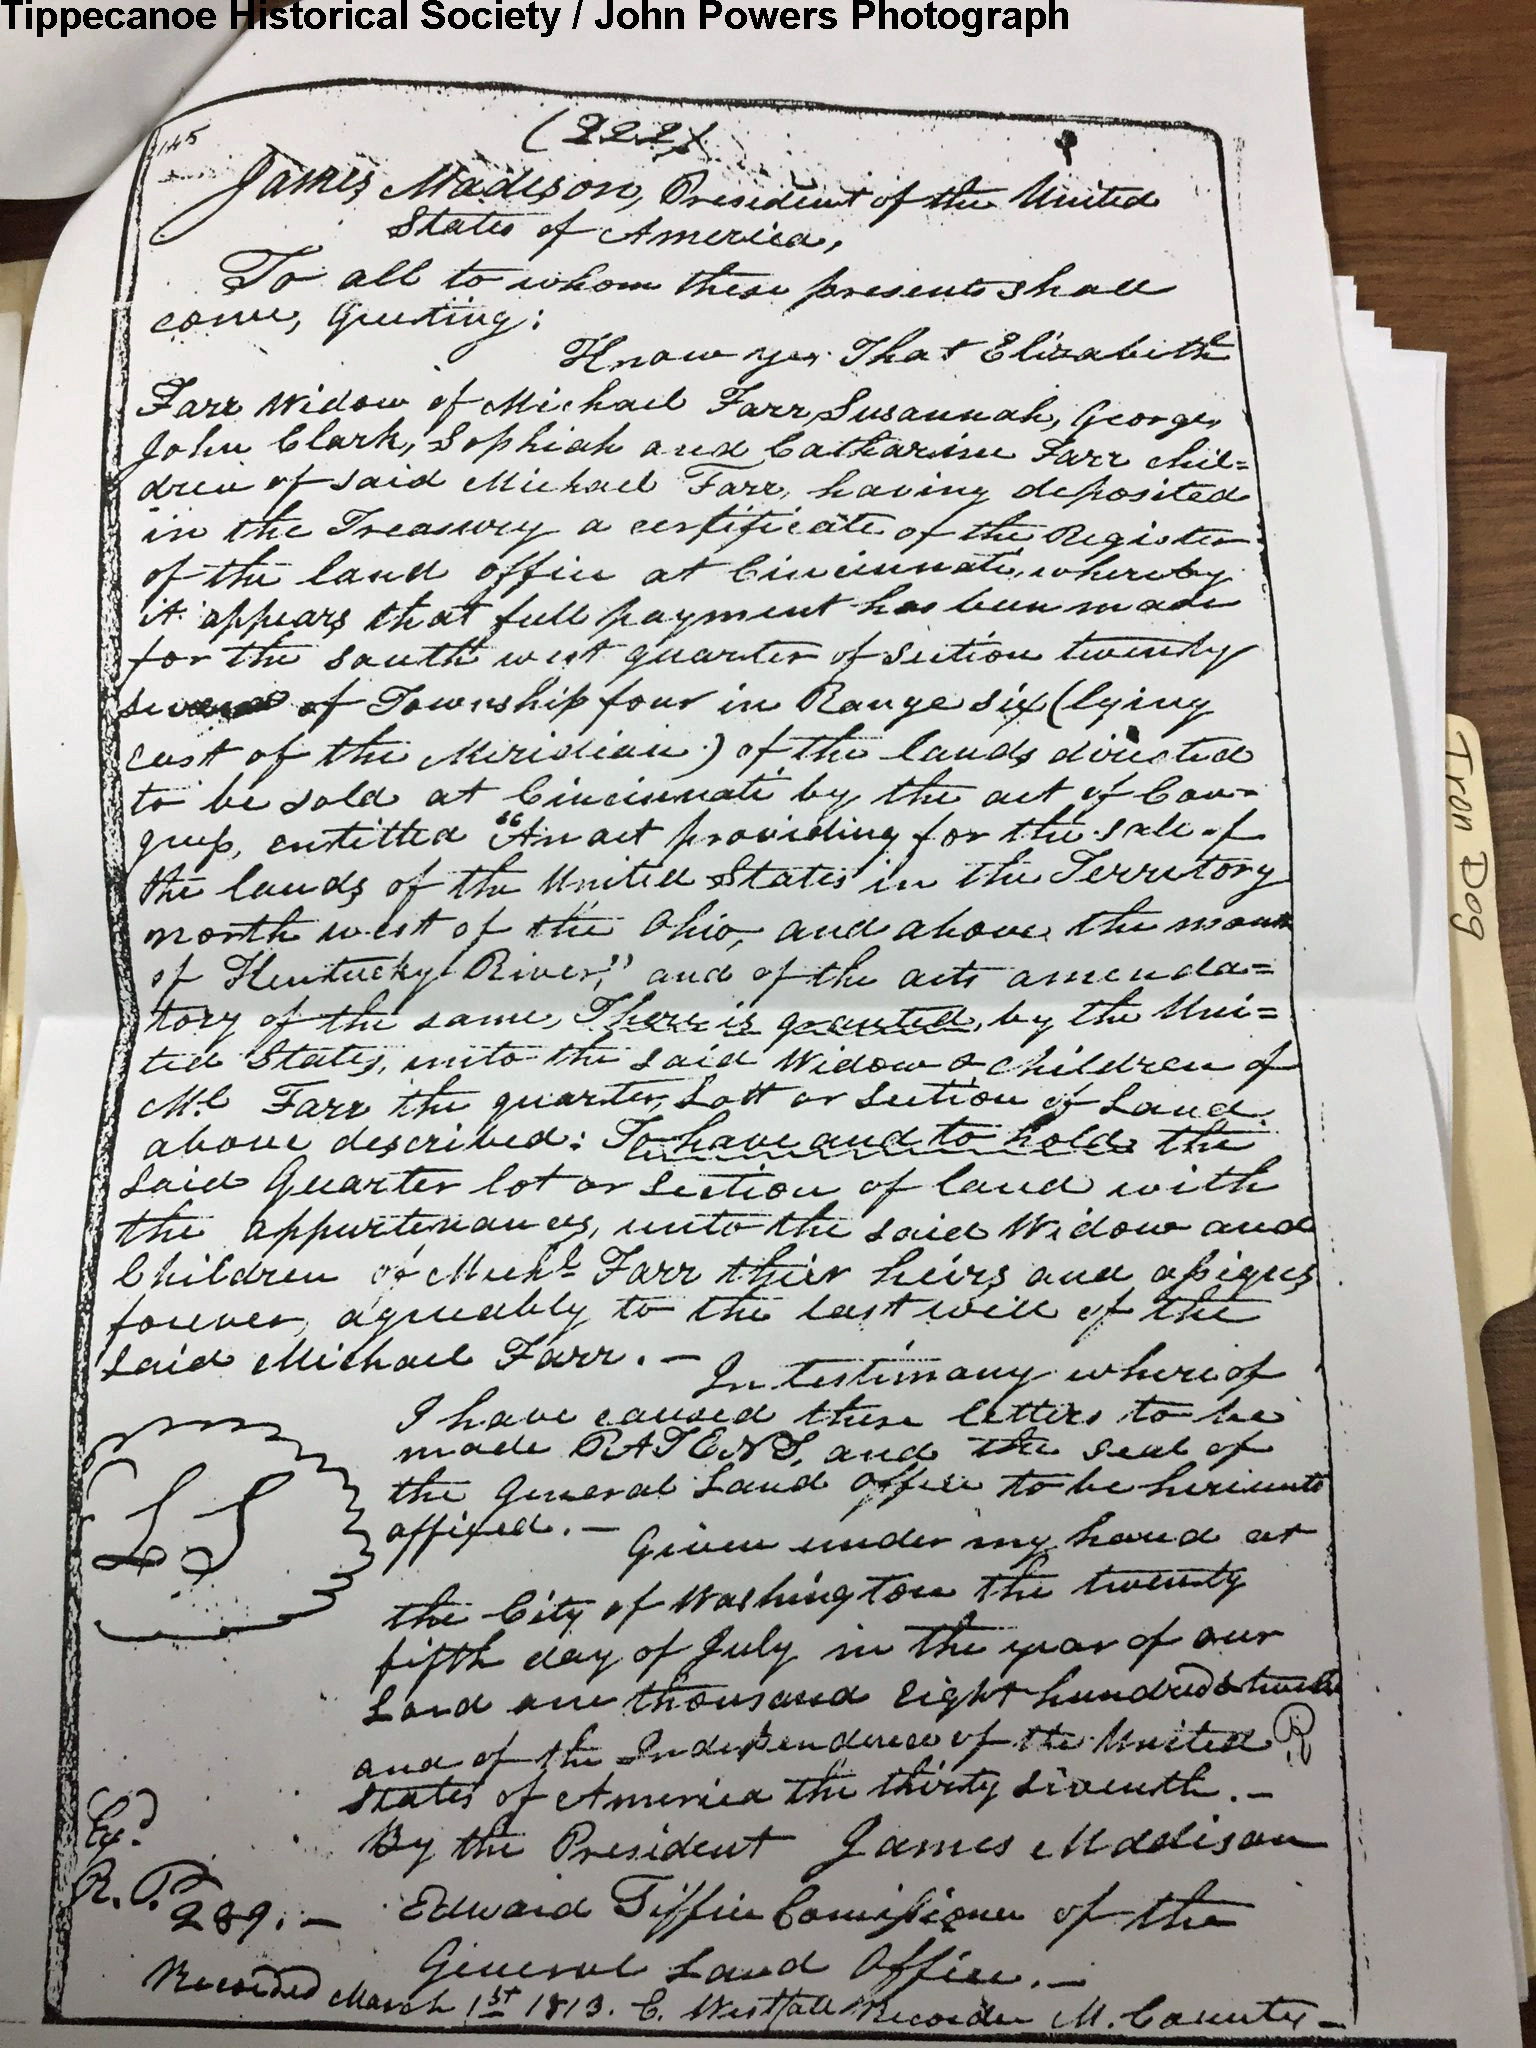 Tippecanoe Historical Society / John Powers Photograph
145
(222)
James Madison, President of the United
States of America,
To all to whom these presents shall
come, Greeting:
Know ye, That Elizabeth
Farr Widow of Michael Farr, Susannah, George,
John Clark, Sophiah and Catharine Farr chil=
dren of said Michael Farr, having deposited
in the Treasury a certificate of the Register
of the land office at Cincinnati, whereby
it appears that full payment has been made
for the south west quarter of section twenty
seven of Township four in Range six (lying
east of the Meridian.) of the lands directed
to be sold at Cincinnati by the act of Con-
gress, entitled "An act providing for the sale of
the lands of the United States in the Territory
north west of the Ohio, and above the mouth
of Kentucky River," and of the acts amenda=
tory of the same, There is granted, by the Uni=
ted States, unto the said Widow & children of
Ml. Farr the quarter, Lott or section of Land
above described: To have and to hold the
said Quarter lot or section of land with
the appurtenances, unto the said Widow and
Children of Michl. Farr their heirs and assigns
forever, agreeably to the last will of the
said Michael Farr. —
In testimony where of
I have caused these letters to be
made PATENT, and the seal of
the General Land office to be hereunto
affixed. —
L S
Given under my hand at
the City of Washington the twenty
fifth day of July in the year of our
Lord one thousand eight hundred & twelve
and of the Independence of the United
States of America the thirty seventh. —
By the President James Maddison
Exd.
R. P.
289. —
Edward Tiffin Comissioner of the
General Land Office. —
Recorded March 1st 1813. C. Westfall Recorder M. County —
Iron Dog